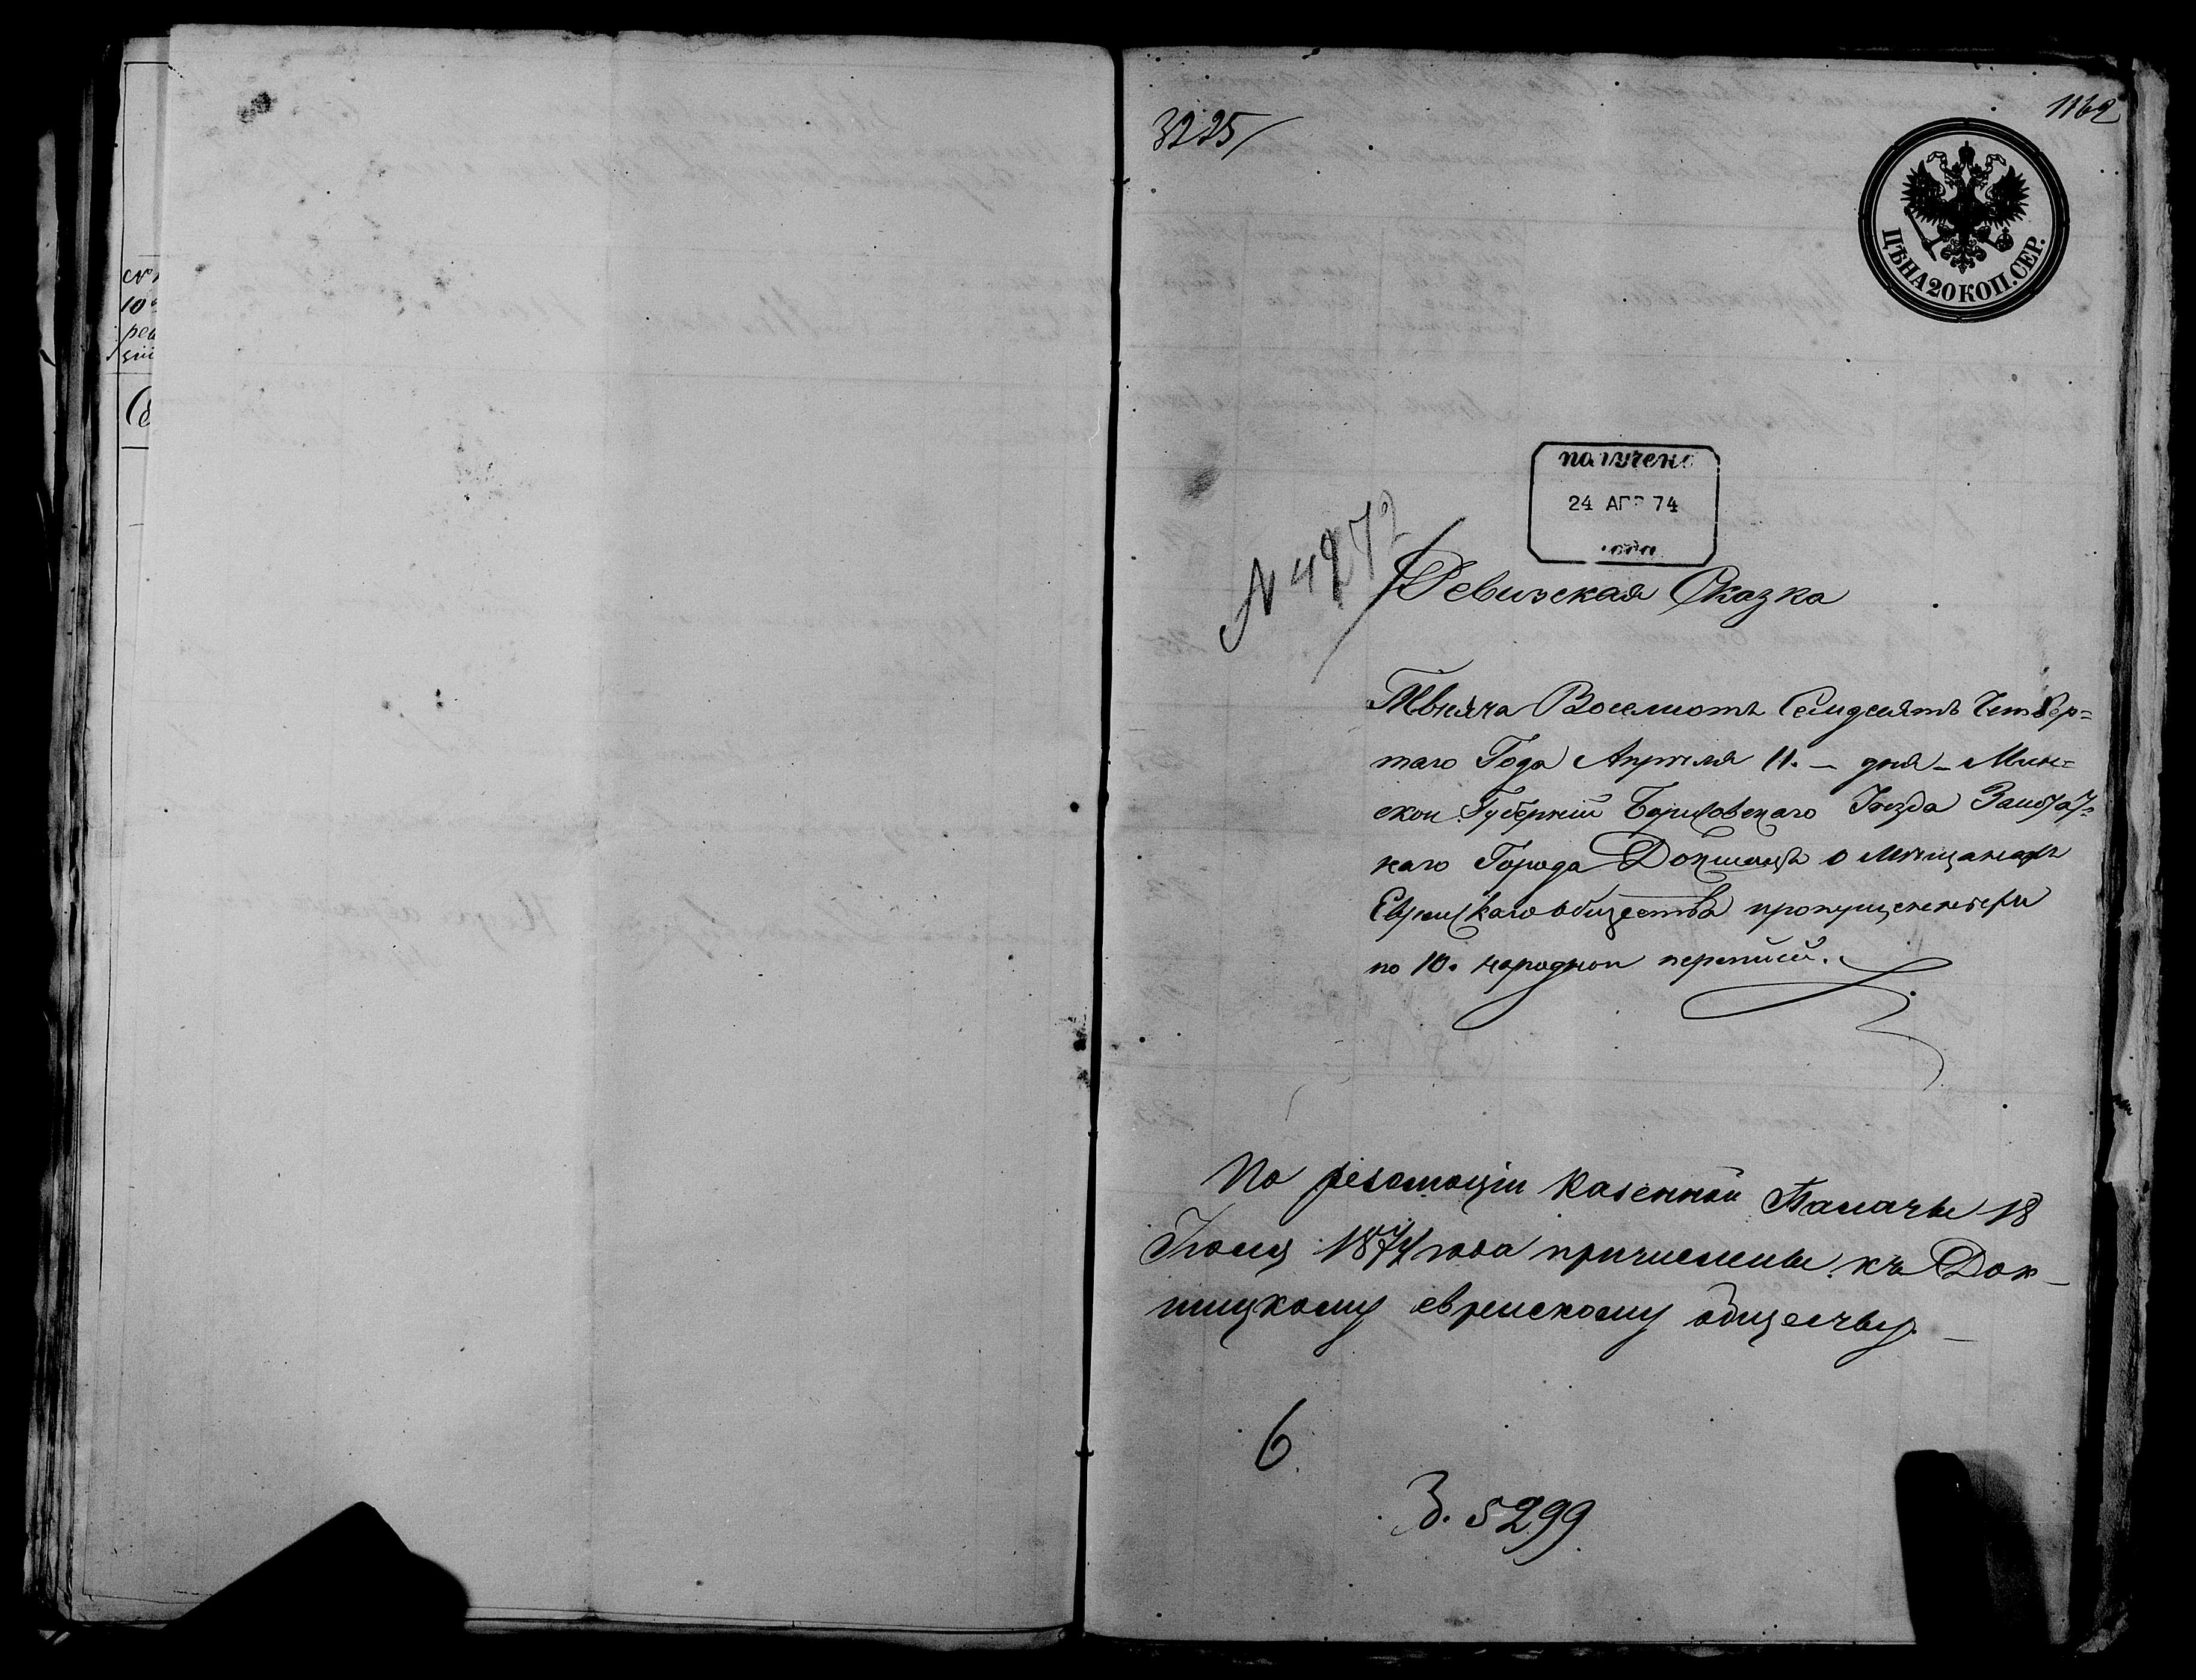 №
10
рев
зіи
Се
3225/
1162
ЦѢНА 20 КОП. СЕР.
получено
24 АПР 74
года
№ 4272
Ревизская Сказка
Тысяча Восемьсотъ Семдесятъ Четвер=
таго Года Апрѣля 11. – дня – Мин=
скои Губерніи Борисовскаго Уѣзда Заштат=
наго Города Докшицъ о мѣщанахъ
Еврейскаго общества пропущенныхъ
по 10. народнои переписи.
По резолюціи Казенной Палаты 18
Іюля 1874 года причислены къ Док–
шицкому еврейскому обществу. –
6.
З. 5299.